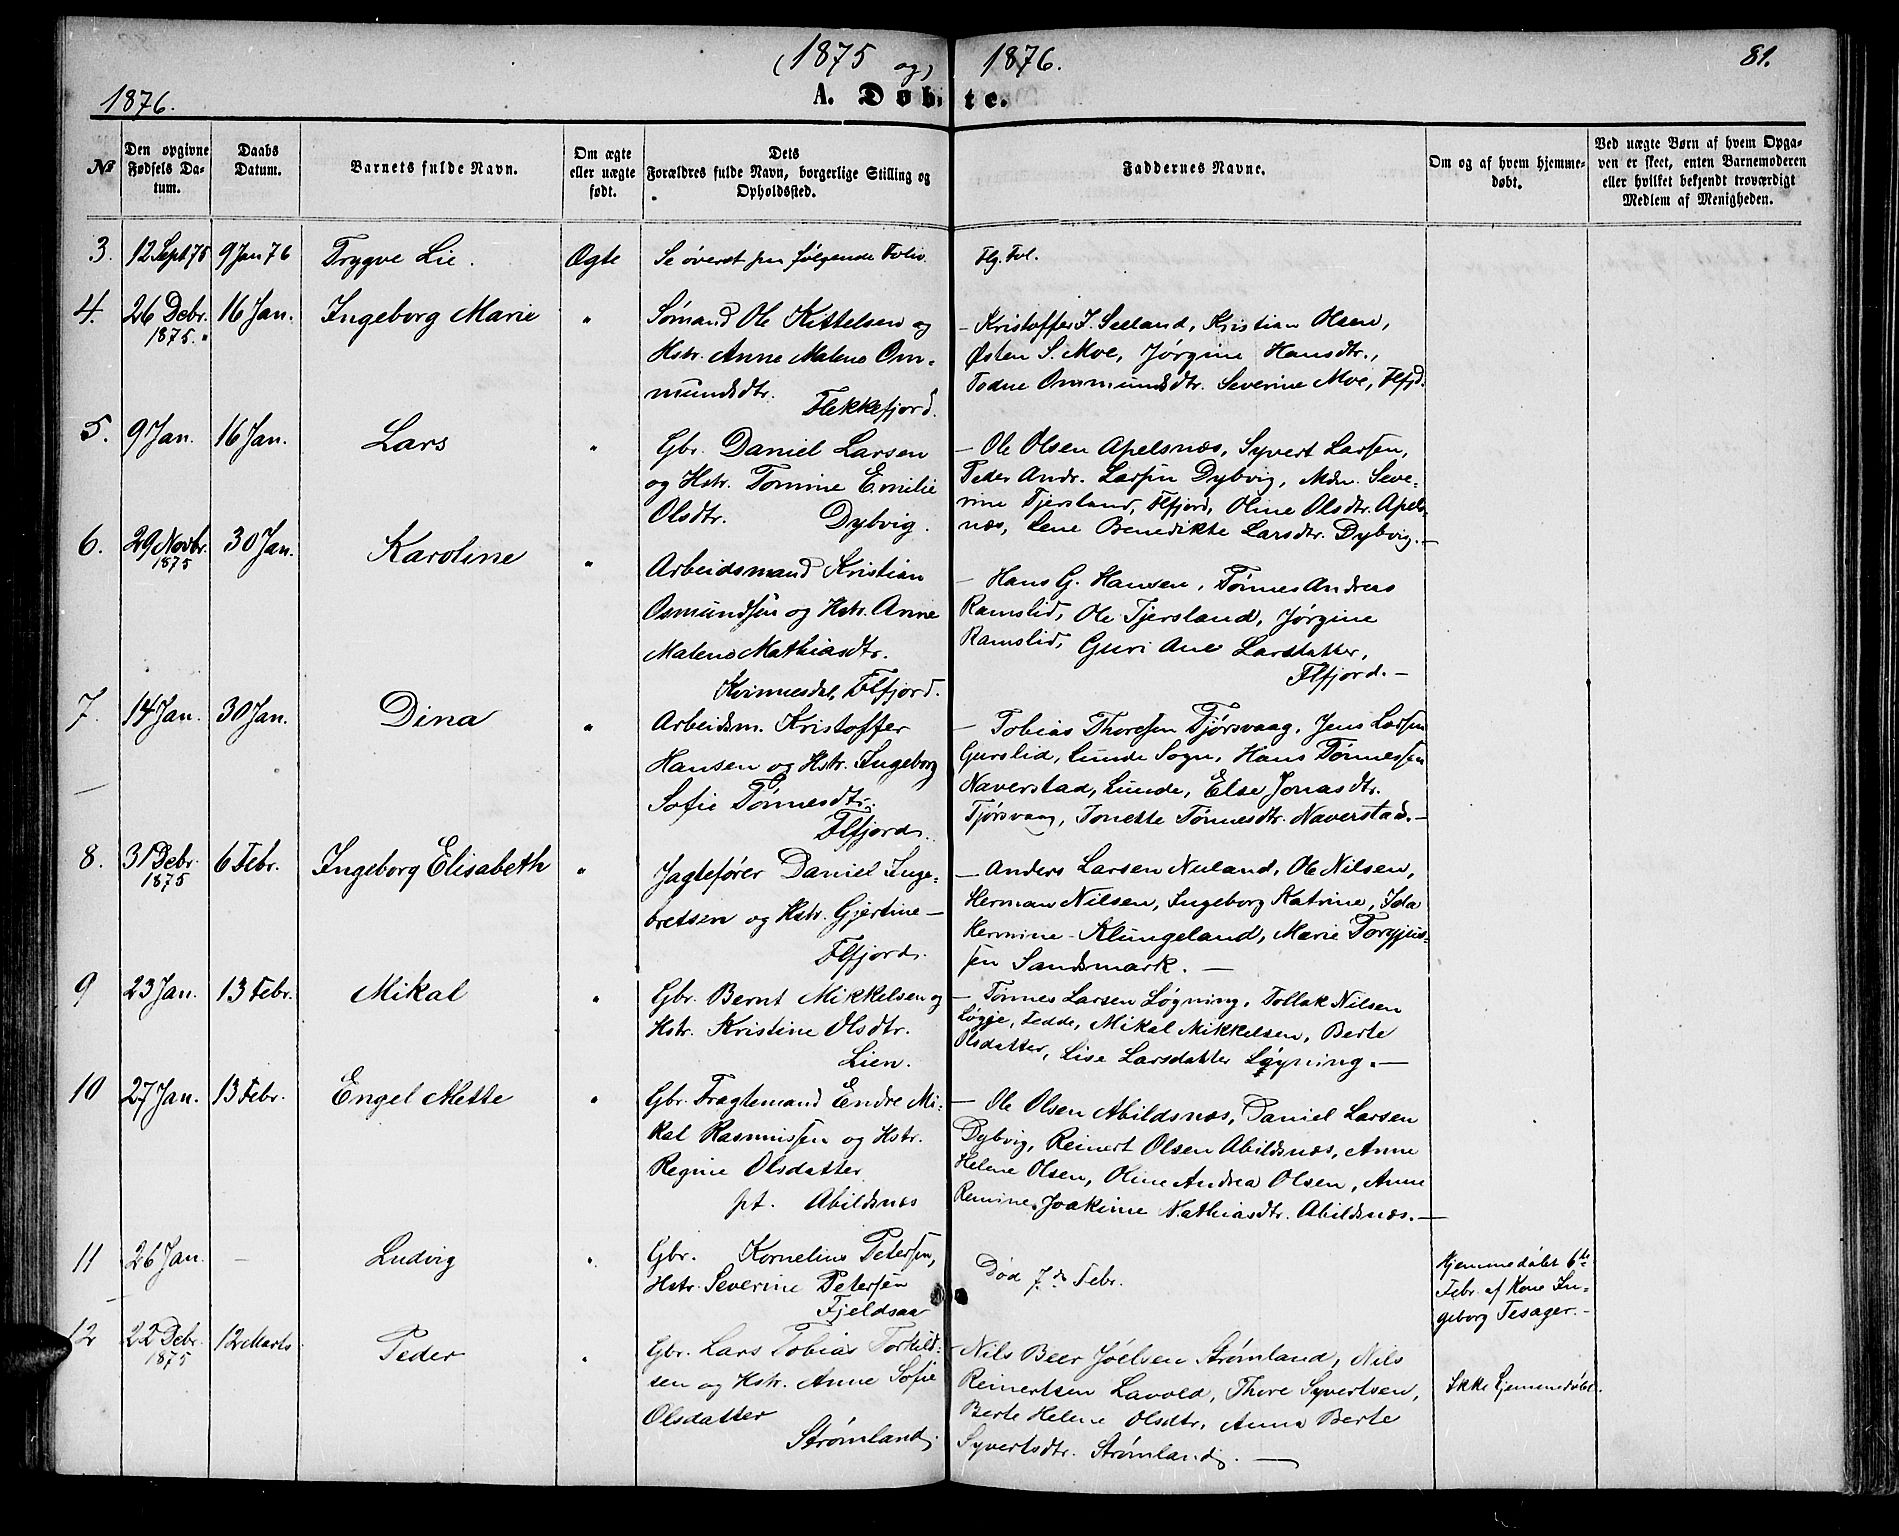 (1875 og) 1876. 81.
1876. A. Døbte.
No
Den opgivne Fødsels Datum.
Daabs Datum.
Barnets fulde Navn.
Om ægte eller uægte født.
Dets Forældres fulde Navn, borgerlige Stilling og Opholdssted.
Faddernes Navne.
Om og af hvem hjemmedøbt.
Ved uægte Børn af hvem Opgaven er skeet, enten Barnemoderen eller hvilket bekjendt troværdigt Medlem af Menigheden.
3. 12 Sept 75 9 Jan 76 Trygve Lie. Ægte Se överst paa følgende Folio. Flg. Fol.
4. 26 Debr. 1875. 16 Jan. Ingeborg Marie "
Sømand Ole Kittelsen og
Hstr. Anne Malene Om-
mundsdtr.
Flekkefjord.
- Kristoffer J. Seeland, Kristian Olsen,
Østen S. Moe, Jørgine Hansdtr.,
Todne Ommundsdtr. Severine Moe, Flfjd.
5. 9 Jan. 16 Jan. Lars "
Gbr. Daniel Larsen
og Hstr. Tomine Emilie
Olsdtr. Dybvig.
- Ole Olsen Apelsnæs, Syvert Larsen,
Peder Andr. Larsen Dybvig, Mdm. Seve-
rine Tjersland, Flfjord, Oline Olsdtr. Apels-
næs, Lene Benedikte Larsdtr. Dybvig. -
6. 29 Novbr. 1875 30 Jan. Karoline "
Arbeidsmand Kristian
Osmundsen og Hstr. Anne
Malene Mathiasdtr.
Kvinnesdal, Flfjord.
- Hans G. Hansen, Tønnes Andreas
Ramslid, Ole Tjersland, Jørgine
Ramslid, Guri Ane Larsdatter,
Flfjord. -
7. 14 Jan. 30 Jan. Dina "
Arbeidsm. Kristoffer
Hansen og Hstr. Ingeborg
Sofie Tønnesdtr.
Flfjord.
- Tobias Thorsen Tjørsvaag, Jens Larsen
Gurslid, Lunde Sogn, Hans Tønnessen
Naverstad, Lunde, Else Jonasdtr.
Tjørsvaag, Tonette Tønnesdtr. Naverstad. -
8. 31 Debr. 1875 6 Febr. Ingeborg Elisabeth "
Jagtefører Daniel Inge-
bretsen og Hstr. Gjertine -
Flfjord.
- Anders Larsen Nuland, Ole Nilsen,
Herman Nilsen, Ingeborg Katrine, Ida
Hermine Klungeland, Marie Torgjus-
sen Sandsmark. -
9 23 Jan. 13 Febr. Mikal "
Gbr. Bernt Mikkelsen og
Hstr. Kristine Olsdtr.
Lien.
- Tønnes Larsen Løgning, Tollak Nilsen
Løgje, Fedde, Mikal Mikkelsen, Berte
Olsdatter, Lise Larsdatter Løyning. -
10 27 Jan. 13 Febr. Engel Mette "
Gbr. Fragtemand Endre Mi-
kal Rasmussen og Hstr.
Regine Olsdatter
pt. Abildsnæs
- Ole Olsen Abildsnæs, Daniel Larsen
Dybvig, Reinert Olsen Abildsnæs, Anne
Helene Olsen, Oline Andrea Olsen, Anne
Remine Joakime Mathiasdtr. Abildsnæs. -
11 26 Jan. - Ludvig "
Gbr. Kornelius Petersen,
Hstr. Severine Petersen
Fjeldsaa
Död 7de Febr.
Hjemmedøbt 6te
Febr. af Kone In-
geborg Tesager. -
12 22 Debr. 1875 12 Marts Peder "
Gbr. Lars Tobias Torkild-
sen og Hstr. Anne Sofie
Olsdatter
Strømland.
Nils Beer Joelsen Strømland, Nils
Reinertsen Lavold, Thore Syvertsen,
Berte Helene Olsdtr, Anna Berte
Syvertsdtr. Strømland. -
Ikke hjemmedøbt.